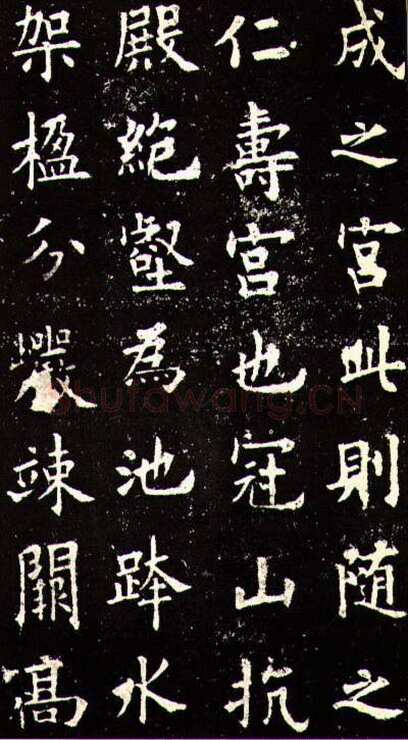 成之宮此則隨之
仁壽宮也冠山抗
殿絶壑為池跨水
架楹分巖竦闕高
shufawang.CN